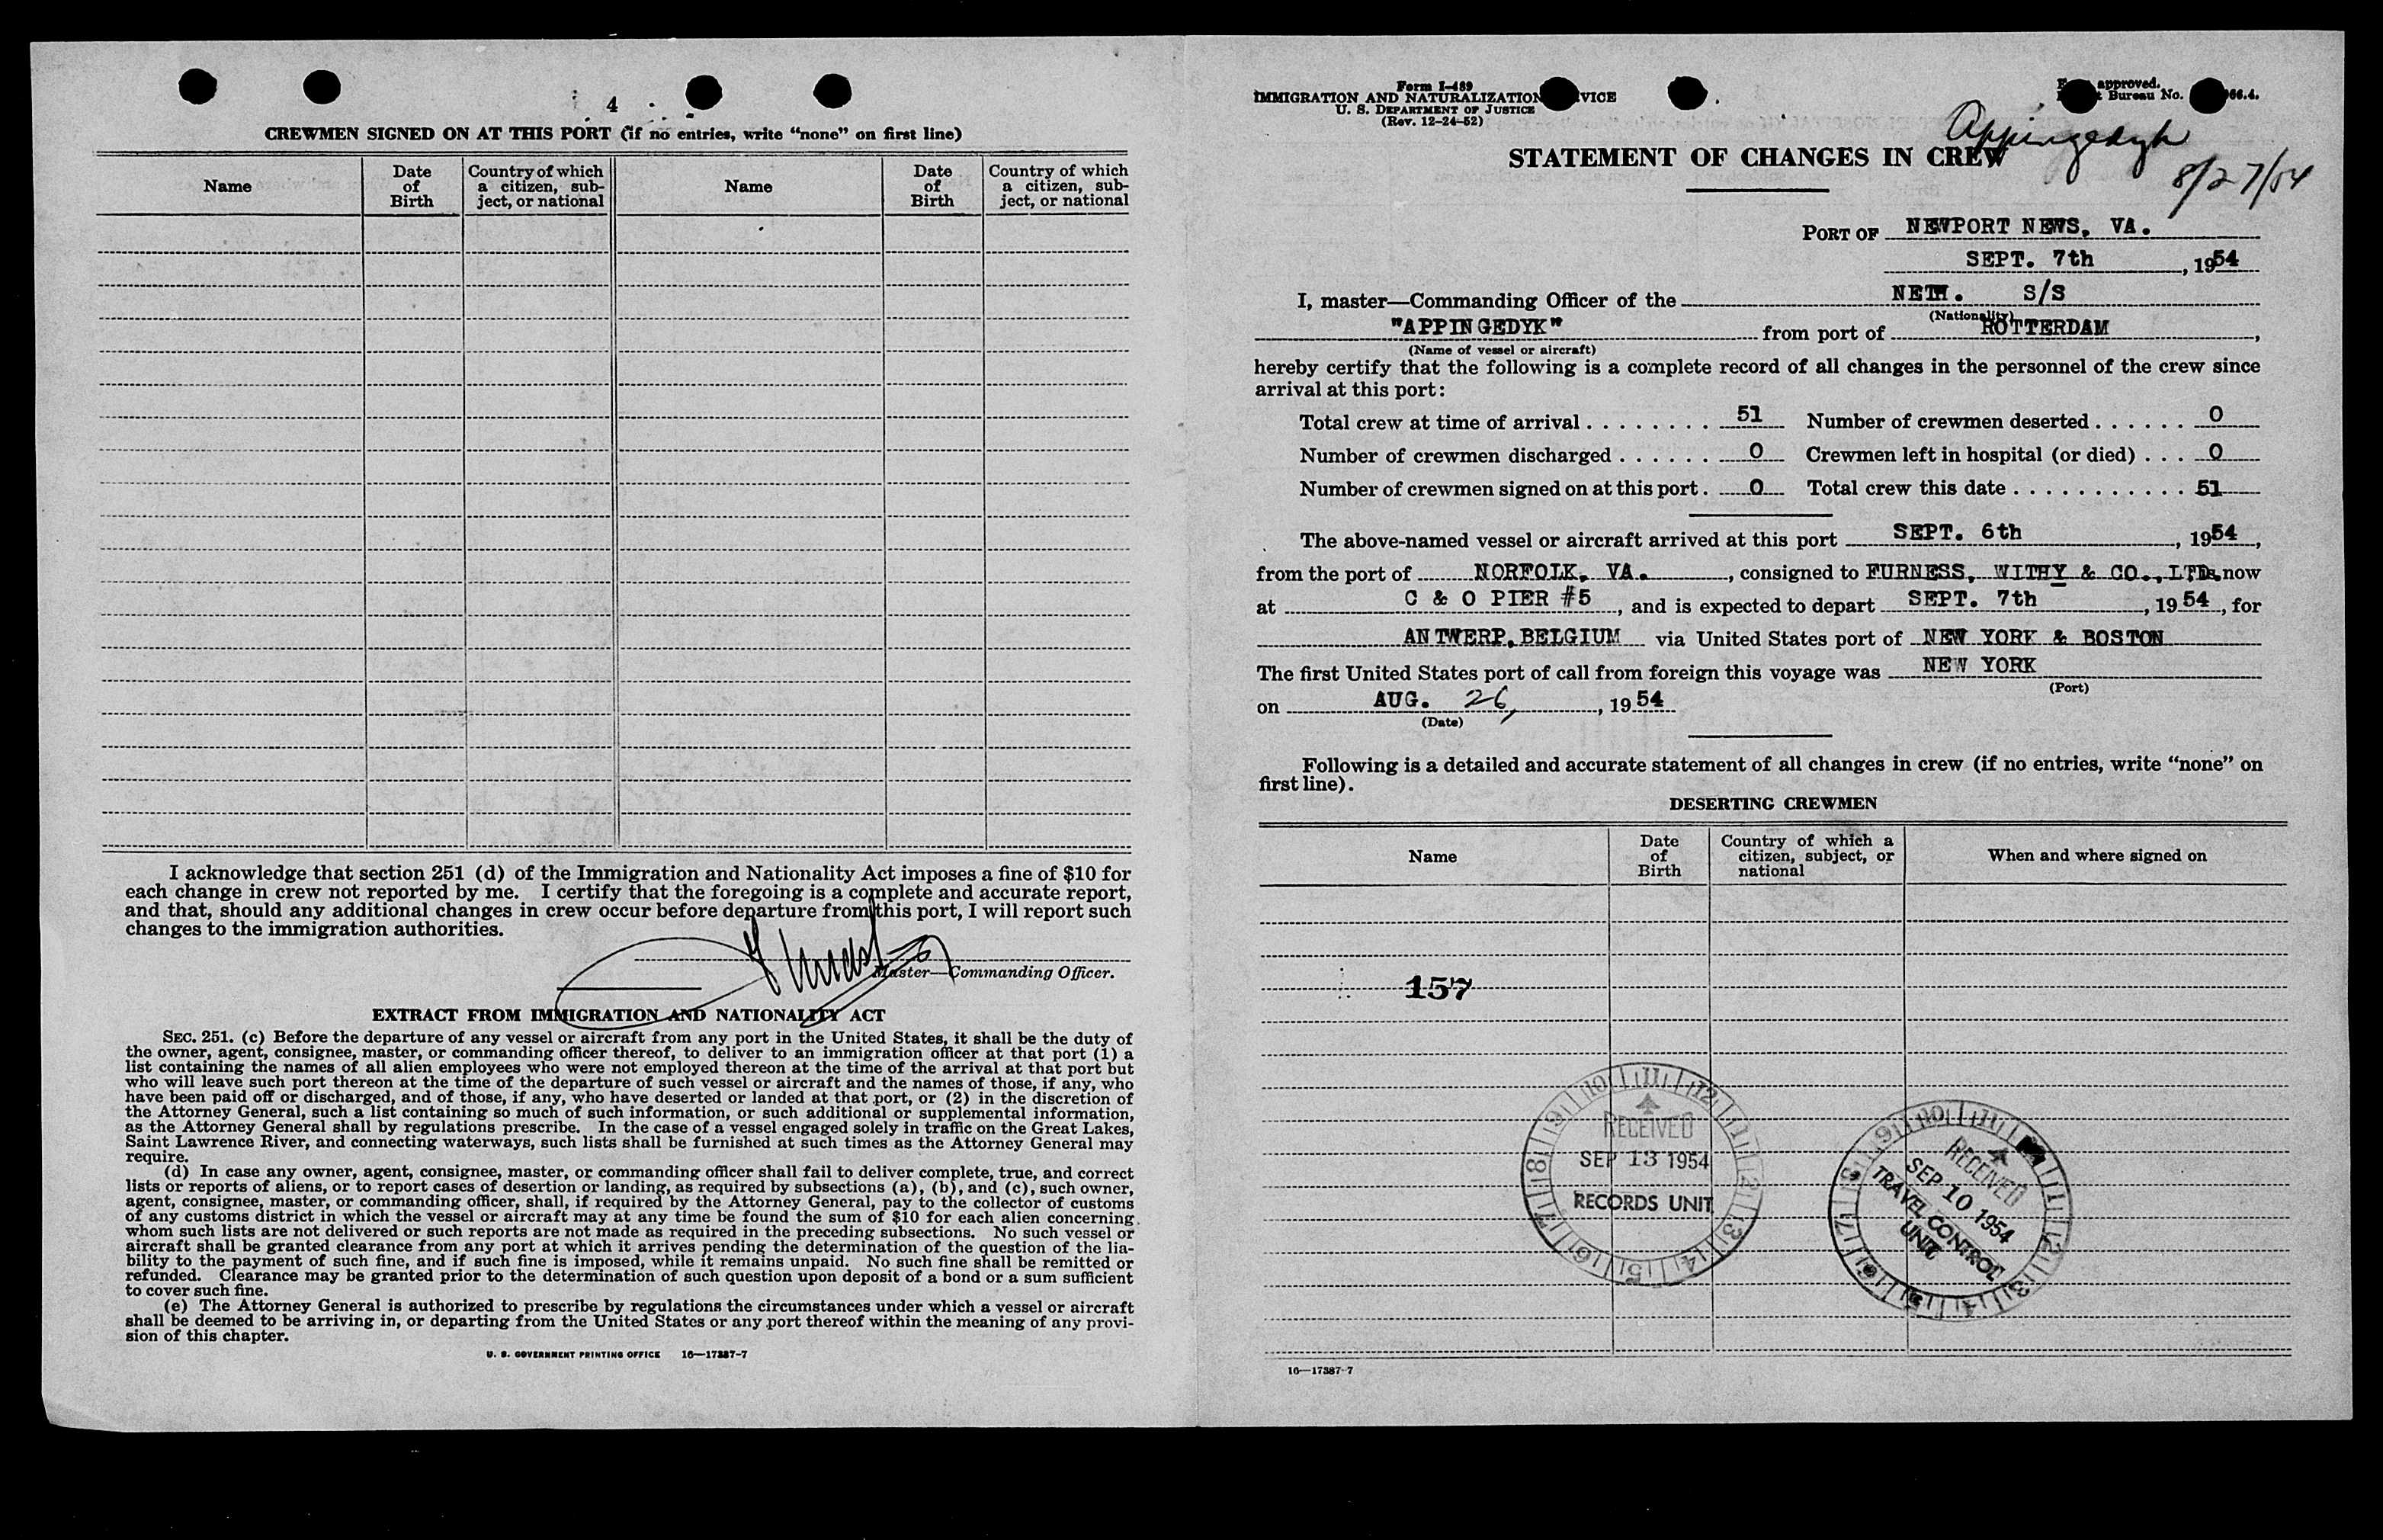 4
CREWMEN SIGNED ON AT THIS PORT (if no entries, write “none” on first line)
Name
Date of Birth
Country of which a citizen, subject, or national
Name
Date of Birth
Country of which a citizen, subject, or national
I acknowledge that section 251 (d) of the Immigration and Nationality Act imposes a fine of $10 for
each change in crew not reported by me. I certify that the foregoing is a complete and accurate report,
and that, should any additional changes in crew occur before departure from this port, I will report such
changes to the immigration authorities.
Master—Commanding Officer.
EXTRACT FROM IMMIGRATION AND NATIONALITY ACT
SEC. 251. (c) Before the departure of any vessel or aircraft from any port in the United States, it shall be the duty of
the owner, agent, consignee, master, or commanding officer thereof, to deliver to an immigration officer at that port (1) a
list containing the names of all alien employees who were not employed thereon at the time of the arrival at that port but
who will leave such port thereon at the time of the departure of such vessel or aircraft and the names of those, if any, who
have been paid off or discharged, and of those, if any, who have deserted or landed at that port, or (2) in the discretion of
the Attorney General, such a list containing so much of such information, or such additional or supplemental information,
as the Attorney General shall by regulations prescribe. In the case of a vessel engaged solely in traffic on the Great Lakes,
Saint Lawrence River, and connecting waterways, such lists shall be furnished at such times as the Attorney General may
require.
(d) In case any owner, agent, consignee, master, or commanding officer shall fail to deliver complete, true, and correct
lists or reports of aliens, or to report cases of desertion or landing, as required by subsections (a), (b), and (c), such owner,
agent, consignee, master, or commanding officer, shall, if required by the Attorney General, pay to the collector of customs
of any customs district in which the vessel or aircraft may at any time be found the sum of $10 for each alien concerning
whom such lists are not delivered or such reports are not made as required in the preceding subsections. No such vessel or
aircraft shall be granted clearance from any port at which it arrives pending the determination of the question of the lia-
bility to the payment of such fine, and if such fine is imposed, while it remains unpaid. No such fine shall be remitted or
refunded. Clearance may be granted prior to the determination of such question upon deposit of a bond or a sum sufficient
to cover such fine.
(e) The Attorney General is authorized to prescribe by regulations the circumstances under which a vessel or aircraft
shall be deemed to be arriving in, or departing from the United States or any port thereof within the meaning of any provi-
sion of this chapter.
U. S. GOVERNMENT PRINTING OFFICE 16—17387-7
Form I-489
IMMIGRATION AND NATURALIZATION VICE
U. S. DEPARTMENT OF JUSTICE
(Rev. 12-24-52)
approved.
Bureau No. 66.4.
Appingedyk
8/27/54
STATEMENT OF CHANGES IN CREW
PORT OF NEWPORT NEWS, VA.
SEPT. 7th, 1954
I, master—Commanding Officer of the NETH. S/S
(Nationality)
"APPINGEDYK" from port of ROTTERDAM,
(Name of vessel or aircraft)
hereby certify that the following is a complete record of all changes in the personnel of the crew since
arrival at this port:
Total crew at time of arrival . . . . . . . . 51 Number of crewmen deserted . . . . . . 0
Number of crewmen discharged . . . . . . 0 Crewmen left in hospital (or died) . . . 0
Number of crewmen signed on at this port . 0 Total crew this date . . . . . . . . . . . 51
The above-named vessel or aircraft arrived at this port SEPT. 6th, 1954,
from the port of NORFOLK, VA., consigned to FURNESS, WITHY & CO., LTD. now
at C & O PIER #5, and is expected to depart SEPT. 7th, 1954, for
ANTWERP, BELGIUM via United States port of NEW YORK & BOSTON
The first United States port of call from foreign this voyage was NEW YORK
(Port)
on AUG. 26, 1954
(Date)
Following is a detailed and accurate statement of all changes in crew (if no entries, write “none” on
first line).
DESERTING CREWMEN
Name
Date of Birth
Country of which a citizen, subject, or national
When and where signed on
157
RECEIVED
SEP 13 1954
RECORDS UNIT
RECEIVED
SEP 10 1954
TRAVEL CONTROL
UNIT
16—17387-7